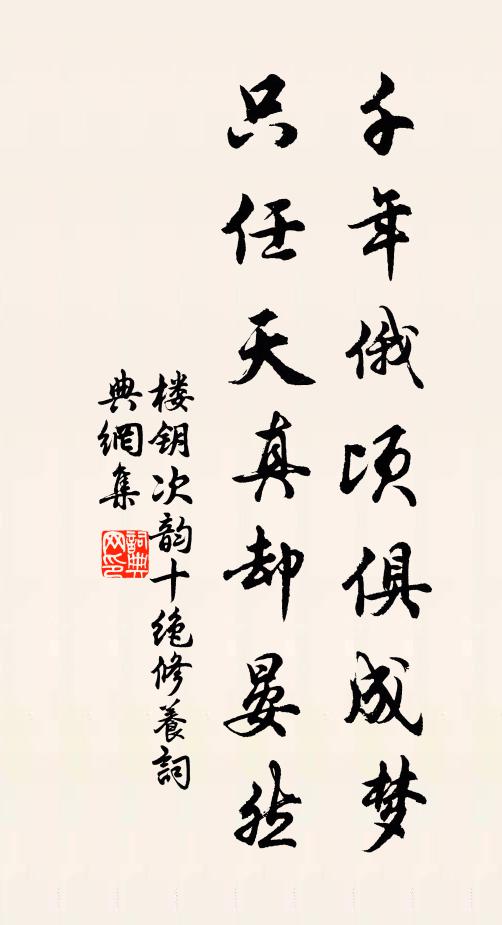 千年俄顷俱成梦
只任天真却晏然
楼钥次韵十绝修养词
典網集
詞典网印